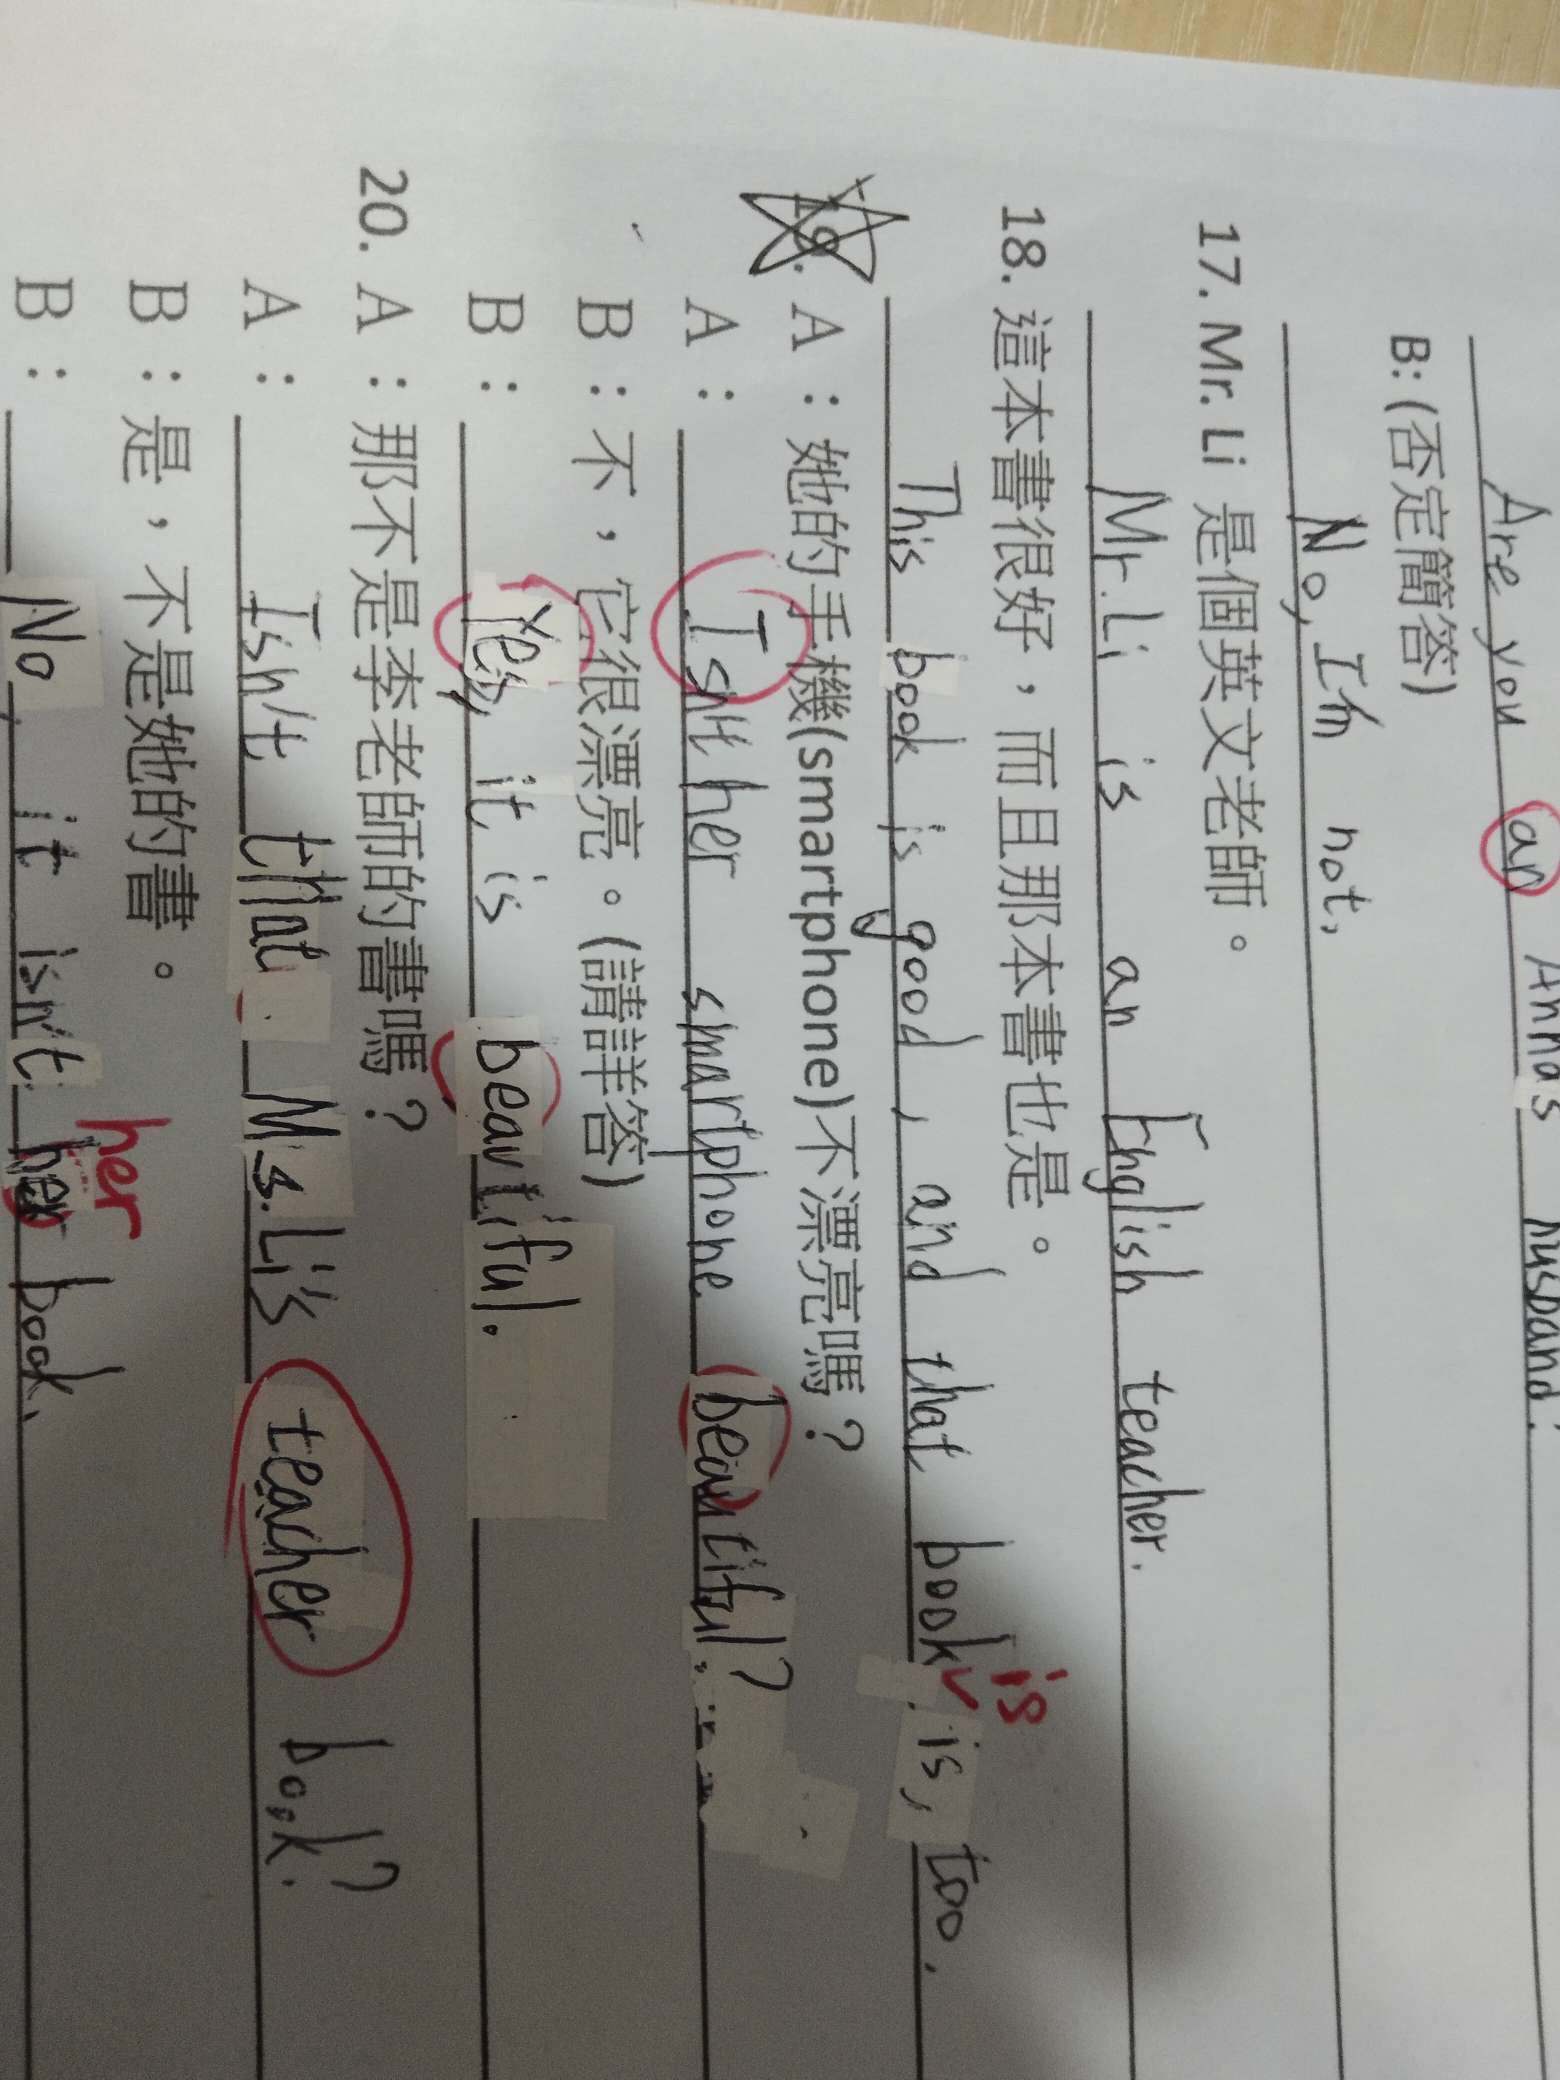 Are you an Anna's husband.
B: (否定簡答)
No, I'm not.
17. Mr. Li 是個英文老師。
Mr. Li is an English teacher.
18. 這本書很好，而且那本書也是。
is
This book is good, and that book is, too.
19. A：她的手機(smartphone)不漂亮嗎？
A：Isn't her smartphone beautiful?
B：不，它很漂亮。(請詳答)
B：Yes, it is beautiful.
20. A：那不是李老師的書嗎？
A：Isn't that Ms. Li's teacher book?
B：是，不是她的書。
her
B：No, it isn't her book.